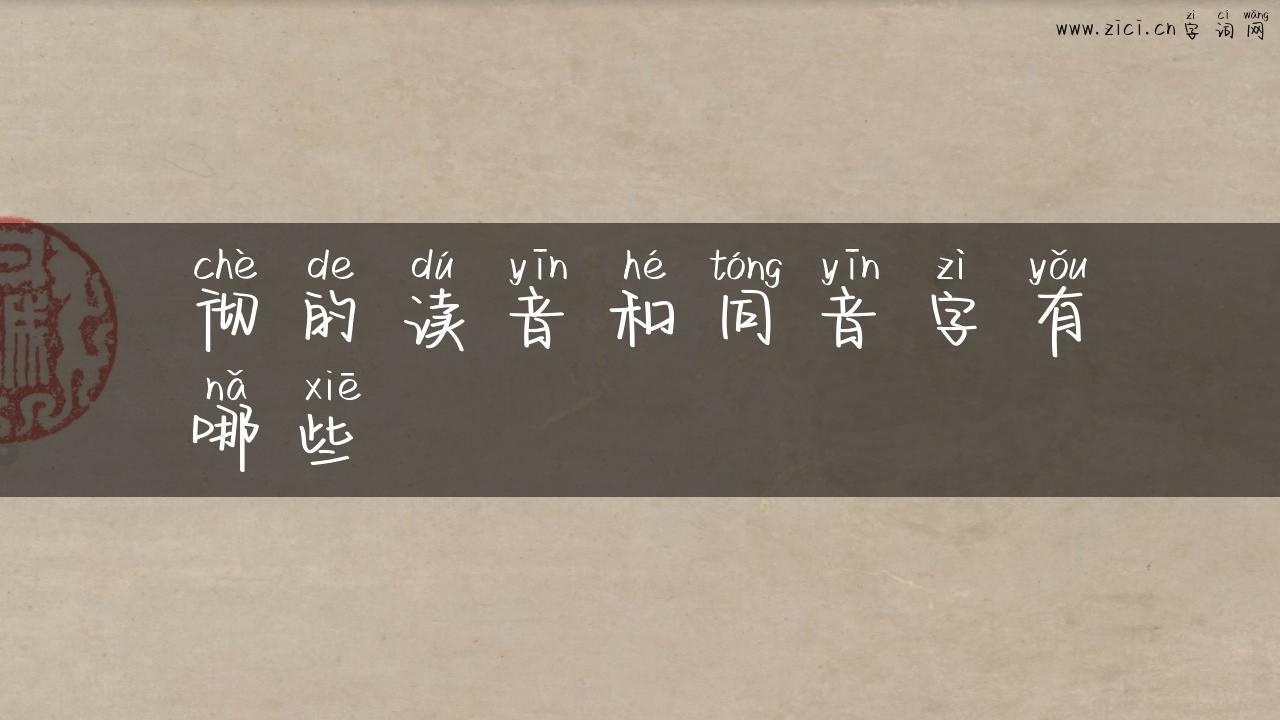 zì cí wǎng
www.zici.cn 字词网
chè de dú yīn hé tóng yīn zì yǒu
彻的读音和同音字有
nǎ xiē
哪些